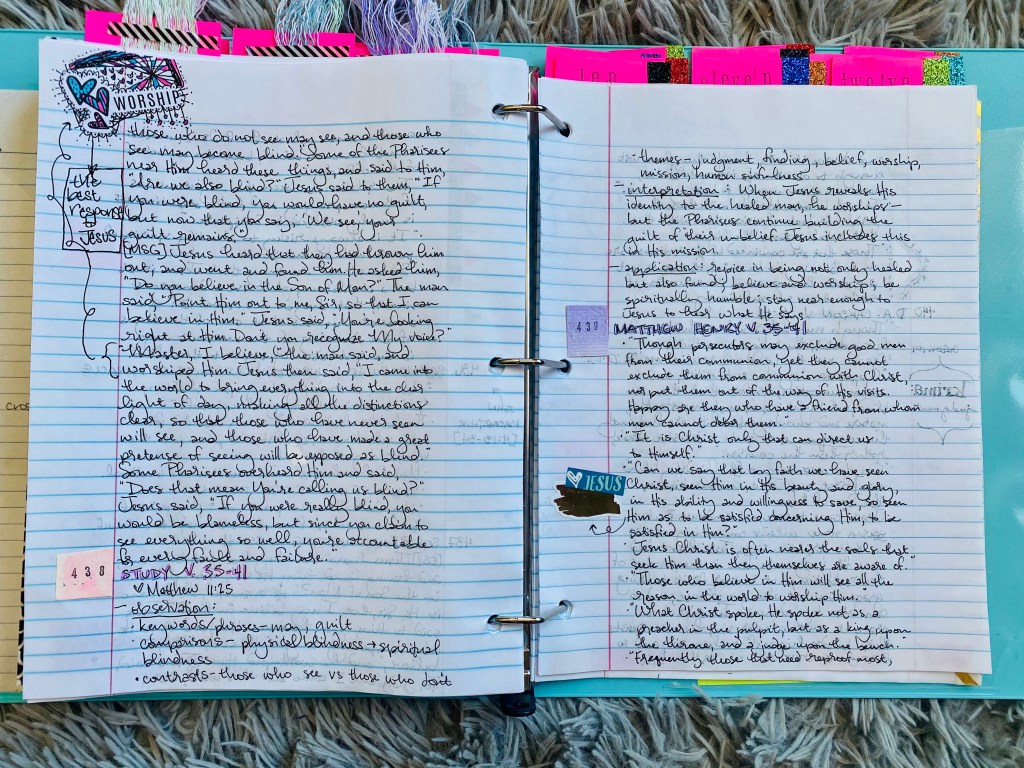 WORSHIP
those who do not see may see, and those who
see may become blind." Some of the Pharisees
near Him heard these things, and said to Him,
"Are we also blind?" Jesus said to them, "If
you were blind, you would have no guilt,
but now that you say, 'We see,' your
guilt remains."
the
best
response
to
JESUS
[MSG] Jesus heard that they had thrown him
out, and went and found him. He asked him,
"Do you believe in the Son of Man?" The man
said "Point Him out to me, Sir, so that I can
believe in Him." Jesus said, "You're looking
right at Him. Don't you recognize My voice?"
"Master, I believe," the man said, and
worshiped Him. Jesus then said, "I came into
the world to bring everything into the clear
light of day, making all the distinctions
clear, so that those who have never seen
will see, and those who have made a great
pretense of seeing will be exposed as blind."
Some Pharisees overheard Him and said,
"Does that mean You're calling us blind?"
Jesus said, "If you were really blind, you
would be blameless, but since you claim to
see everything so well, you're accountable
for every fault and failure."
438
STUDY V. 35-41
Matthew 11:25
- observation:
keywords/phrases- may, guilt
• comparisons- physical blindness → spiritual
blindness
• contrasts- those who see vs those who don't
ten
eleven
twelve
• themes- judgment, finding, belief, worship,
mission, human sinfulness
- interpretation: When Jesus reveals His
identity to the healed man, he worships-
but the Pharisees continue building the
guilt of their unbelief. Jesus includes this
in His mission.
- application: rejoice in being not only healed
but also found; believe and worship; be
spiritually humble; stay near enough to
Jesus to hear what He says
439
MATTHEW HENRY V. 35-41
• "Though persecutors may exclude good men
from their communion, yet they cannot
exclude them from communion with Christ,
nor put them out of the way of His visits.
Happy are they who have a friend from whom
men cannot debar them."
• "It is Christ only that can direct us
to Himself."
• "Can we say that by faith we have seen
Christ, seen Him in His beauty and glory,
in His ability and willingness to save, so seen
Him as to be satisfied concerning Him, to be
satisfied in Him?"
JESUS
• "Jesus Christ is often nearer the souls that
seek Him than they themselves are aware of."
• "Those who believe in Him will see all the
reason in the world to worship Him."
• "What Christ spoke, He spoke not as a
preacher in the pulpit, but as a king upon
the throne, and a judge upon the bench."
• "Frequently those that need reproof most,